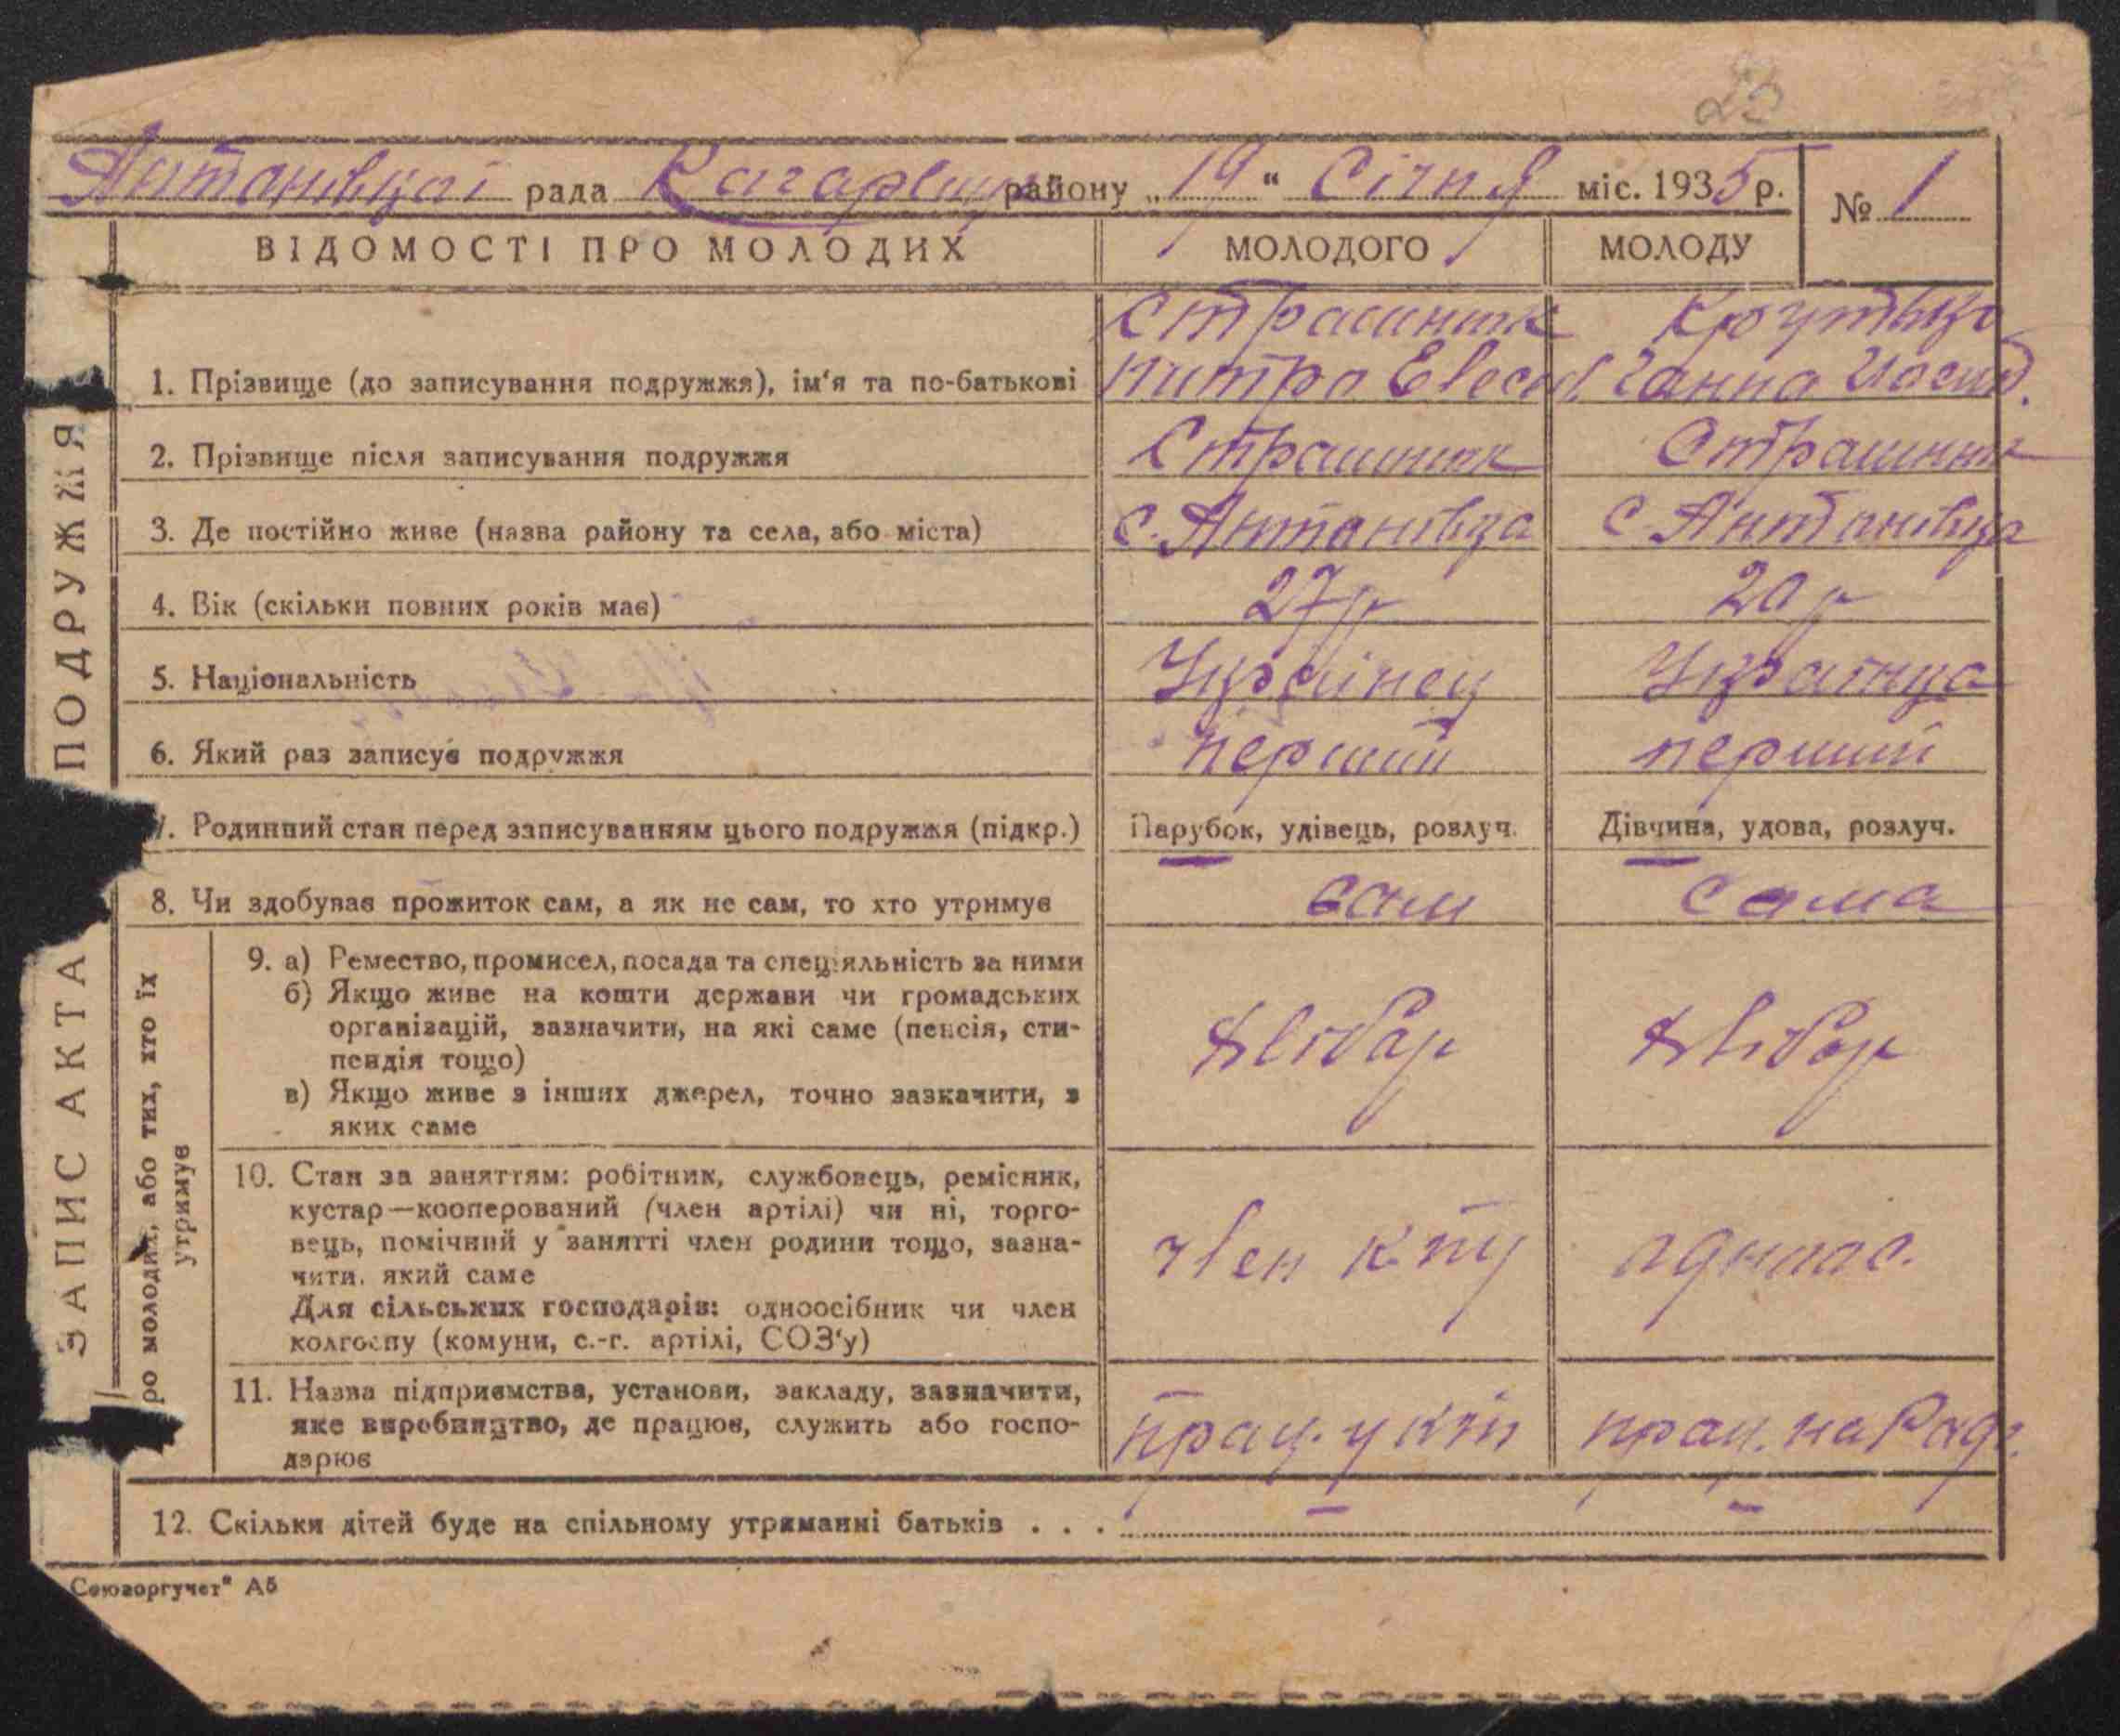 23
рада району „19“ Січня міс. 1935 р. № 1
ВІДОМОСТІ ПРО МОЛОДИХ МОЛОДОГО МОЛОДУ
1. Прізвище (до записування подружжя), ім'я та по-батькові
Ганна
2. Прізвище після записування подружжя
3. Де постійно живе (назва району та села, або міста) с. Антонівца с. Антонівца
4. Вік (скільки повних років має) 27 р 20 р
5. Національність Украінец Украінца
6. Який раз записує подружжя перший перший
7. Родинний стан перед записуванням цього подружжя (підкр.) Парубок, удівець, розлуч. Дівчина, удова, розлуч.
8. Чи здобуває прожиток сам, а як не сам, то хто утримує сам сама
9. а) Ремество, промисел, посада та спеціяльність за ними
б) Якщо живе на кошти держави чи громадських
організацій, зазначити, на які саме (пенсія, сти-
пендія тощо)
в) Якщо живе з інших джерел, точно зазкачити, з
яких саме
хлібар хлібар
10. Стан за заняттям: робітник, службовець, ремісник,
кустар—кооперований (член артілі) чи ні, торго-
вець, помічний у занятті член родини тощо, зазна-
чити, який саме
Для сільських господарів: одноосібник чи член
колгоспу (комуни, с.-г. артілі, СОЗ'у)
член
11. Назва підприємства, установи, закладу, зазначити,
яке виробництво, де працює, служить або госпо-
дарює
прац. у прац. на
12. Скільки дітей буде на спільному утриманні батьків . . . — —
ЗАПИС АКТА ПОДРУЖЖЯ
ро молодих, або тих, хто їх
утримує
Союзоргучет" А5